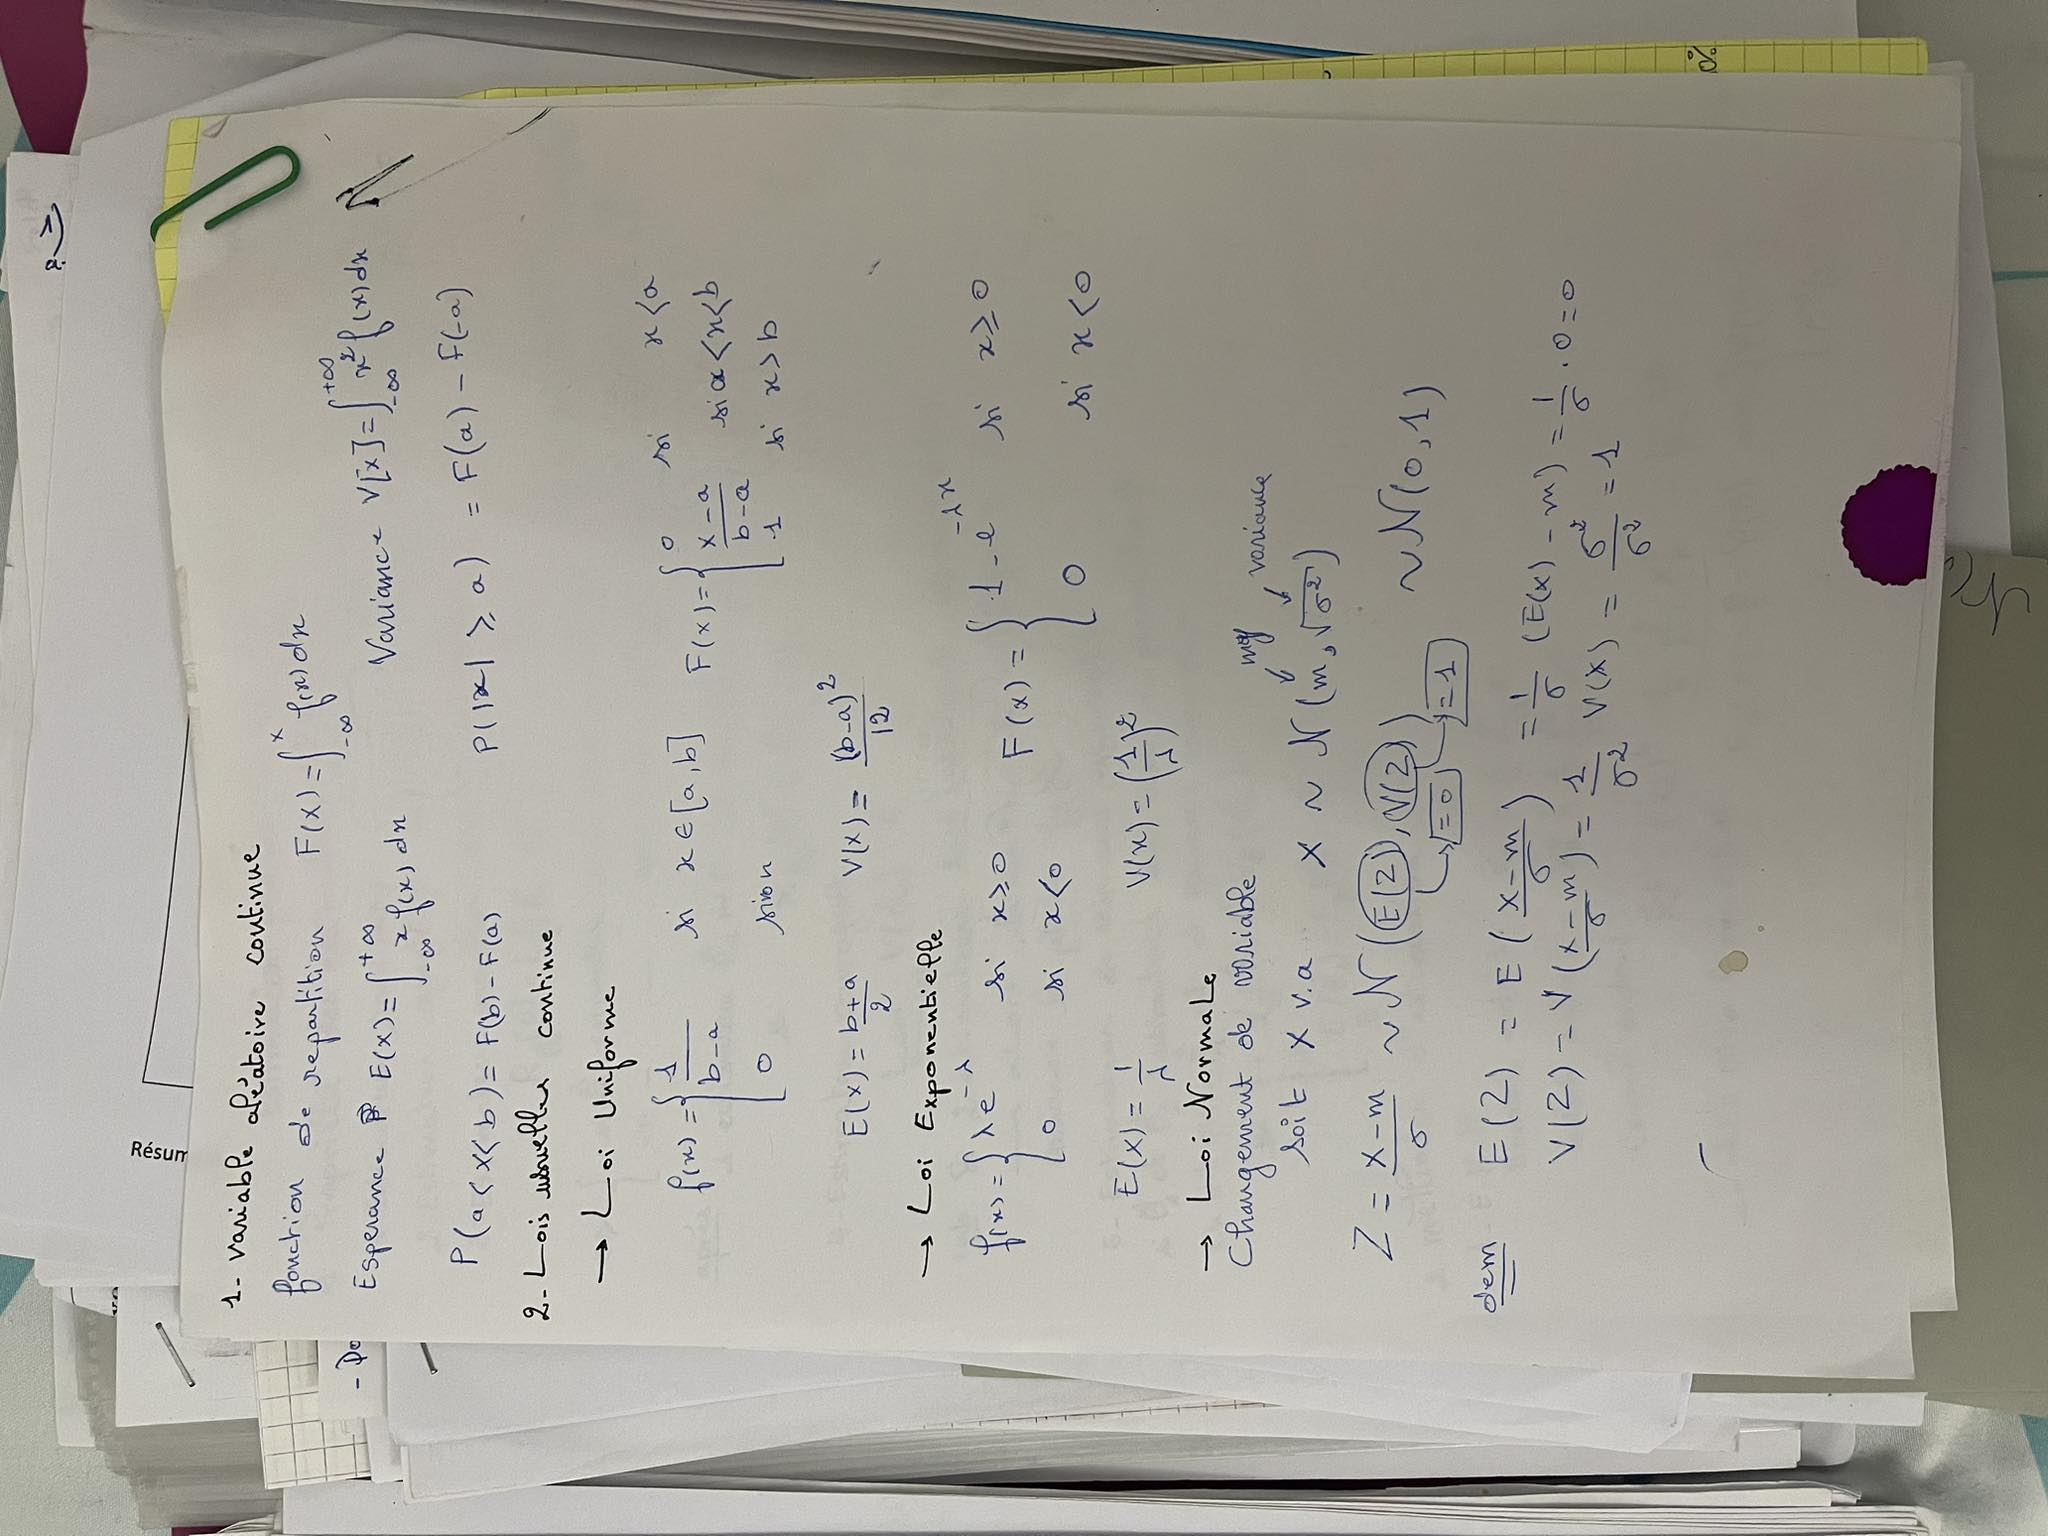 1- variable aléatoire continue
fonction de repartition F(x) = ∫_{-∞}^{x} f(x) dx
Esperance E(x) = ∫_{-∞}^{+∞} x f(x) dx Variance V[x] = ∫_{-∞}^{+∞} x² f(x) dx
P(a < x < b) = F(b) - F(a) P(|x| ≥ a) = F(a) - F(-a)
2- Lois usuelles continue
→ Loi Uniforme
f(x) = { 1/(b-a) si x ∈ [a,b] F(x) = { 0 si x < a
(x-a)/(b-a) si a < x < b
0 sinon 1 si x > b
E(x) = (b+a)/2 V(x) = (b-a)²/12
→ Loi Exponentielle
f(x) = { λ e^{-λ} si x ≥ 0 F(x) = { 1 - e^{-λx} si x ≥ 0
0 si x < 0 0 si x < 0
E(x) = 1/λ V(x) = (1/λ)²
→ Loi Normale
Changement de variable moy variance
soit X v.a X ~ N(m, √σ²)
Z = (X-m)/σ ~ N(E(Z), V(Z)) ~ N(0, 1)
=0 =1
dem E(Z) = E((X-m)/σ) = 1/σ (E(x) - m) = 1/σ . 0 = 0
V(Z) = V((X-m)/σ) = 1/σ² V(X) = σ²/σ² = 1
Résum
- Do
0%